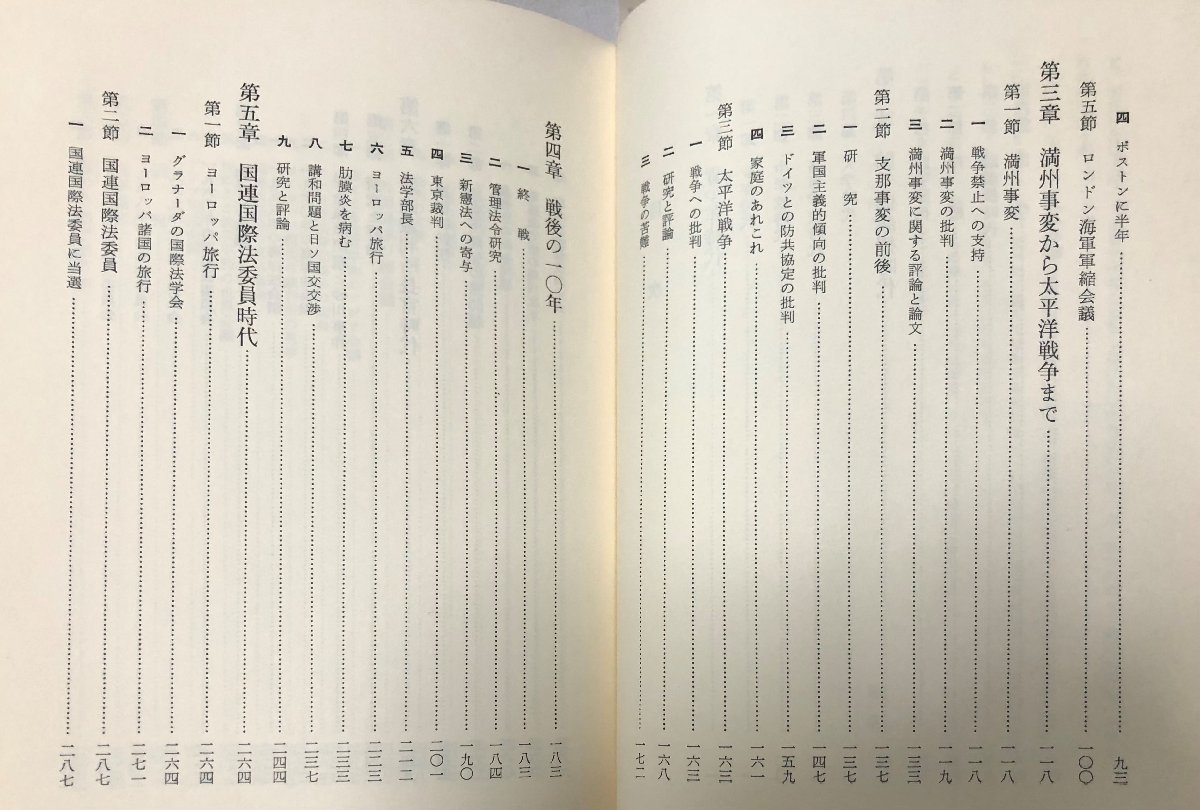 四 ボストンに半年……九三
第五節 ロンドン海軍軍縮会議……一〇〇
第三章 満州事変から太平洋戦争まで……一一八
第一節 満州事変……一一八
一 戦争禁止への支持……一一八
二 満州事変の批判……一一九
三 満州事変に関する評論と論文……一三三
第二節 支那事変の前後……一三七
一 研究……一三七
二 軍国主義的傾向の批判……一四七
三 ドイツとの防共協定の批判……一五九
四 家庭のあれこれ……一六一
第三節 太平洋戦争……一六三
一 戦争への批判……一六三
二 研究と評論……一六八
三 戦争の苦難……一七二
第四章 戦後の一〇年……一八三
一 終戦……一八三
二 管理法令研究……一八四
三 新憲法への寄与……一九〇
四 東京裁判……二〇一
五 法学部長……二一二
六 ヨーロッパ旅行……二二三
七 肋膜炎を病む……二三三
八 講和問題と日ソ国交交渉……二三七
九 研究と評論……二四四
第五章 国連国際法委員時代……二六四
第一節 ヨーロッパ旅行……二六四
一 グラナーダの国際法学会……二六四
二 ヨーロッパ諸国の旅行……二七一
第二節 国連国際法委員……二八七
一 国連国際法委員に当選……二八七